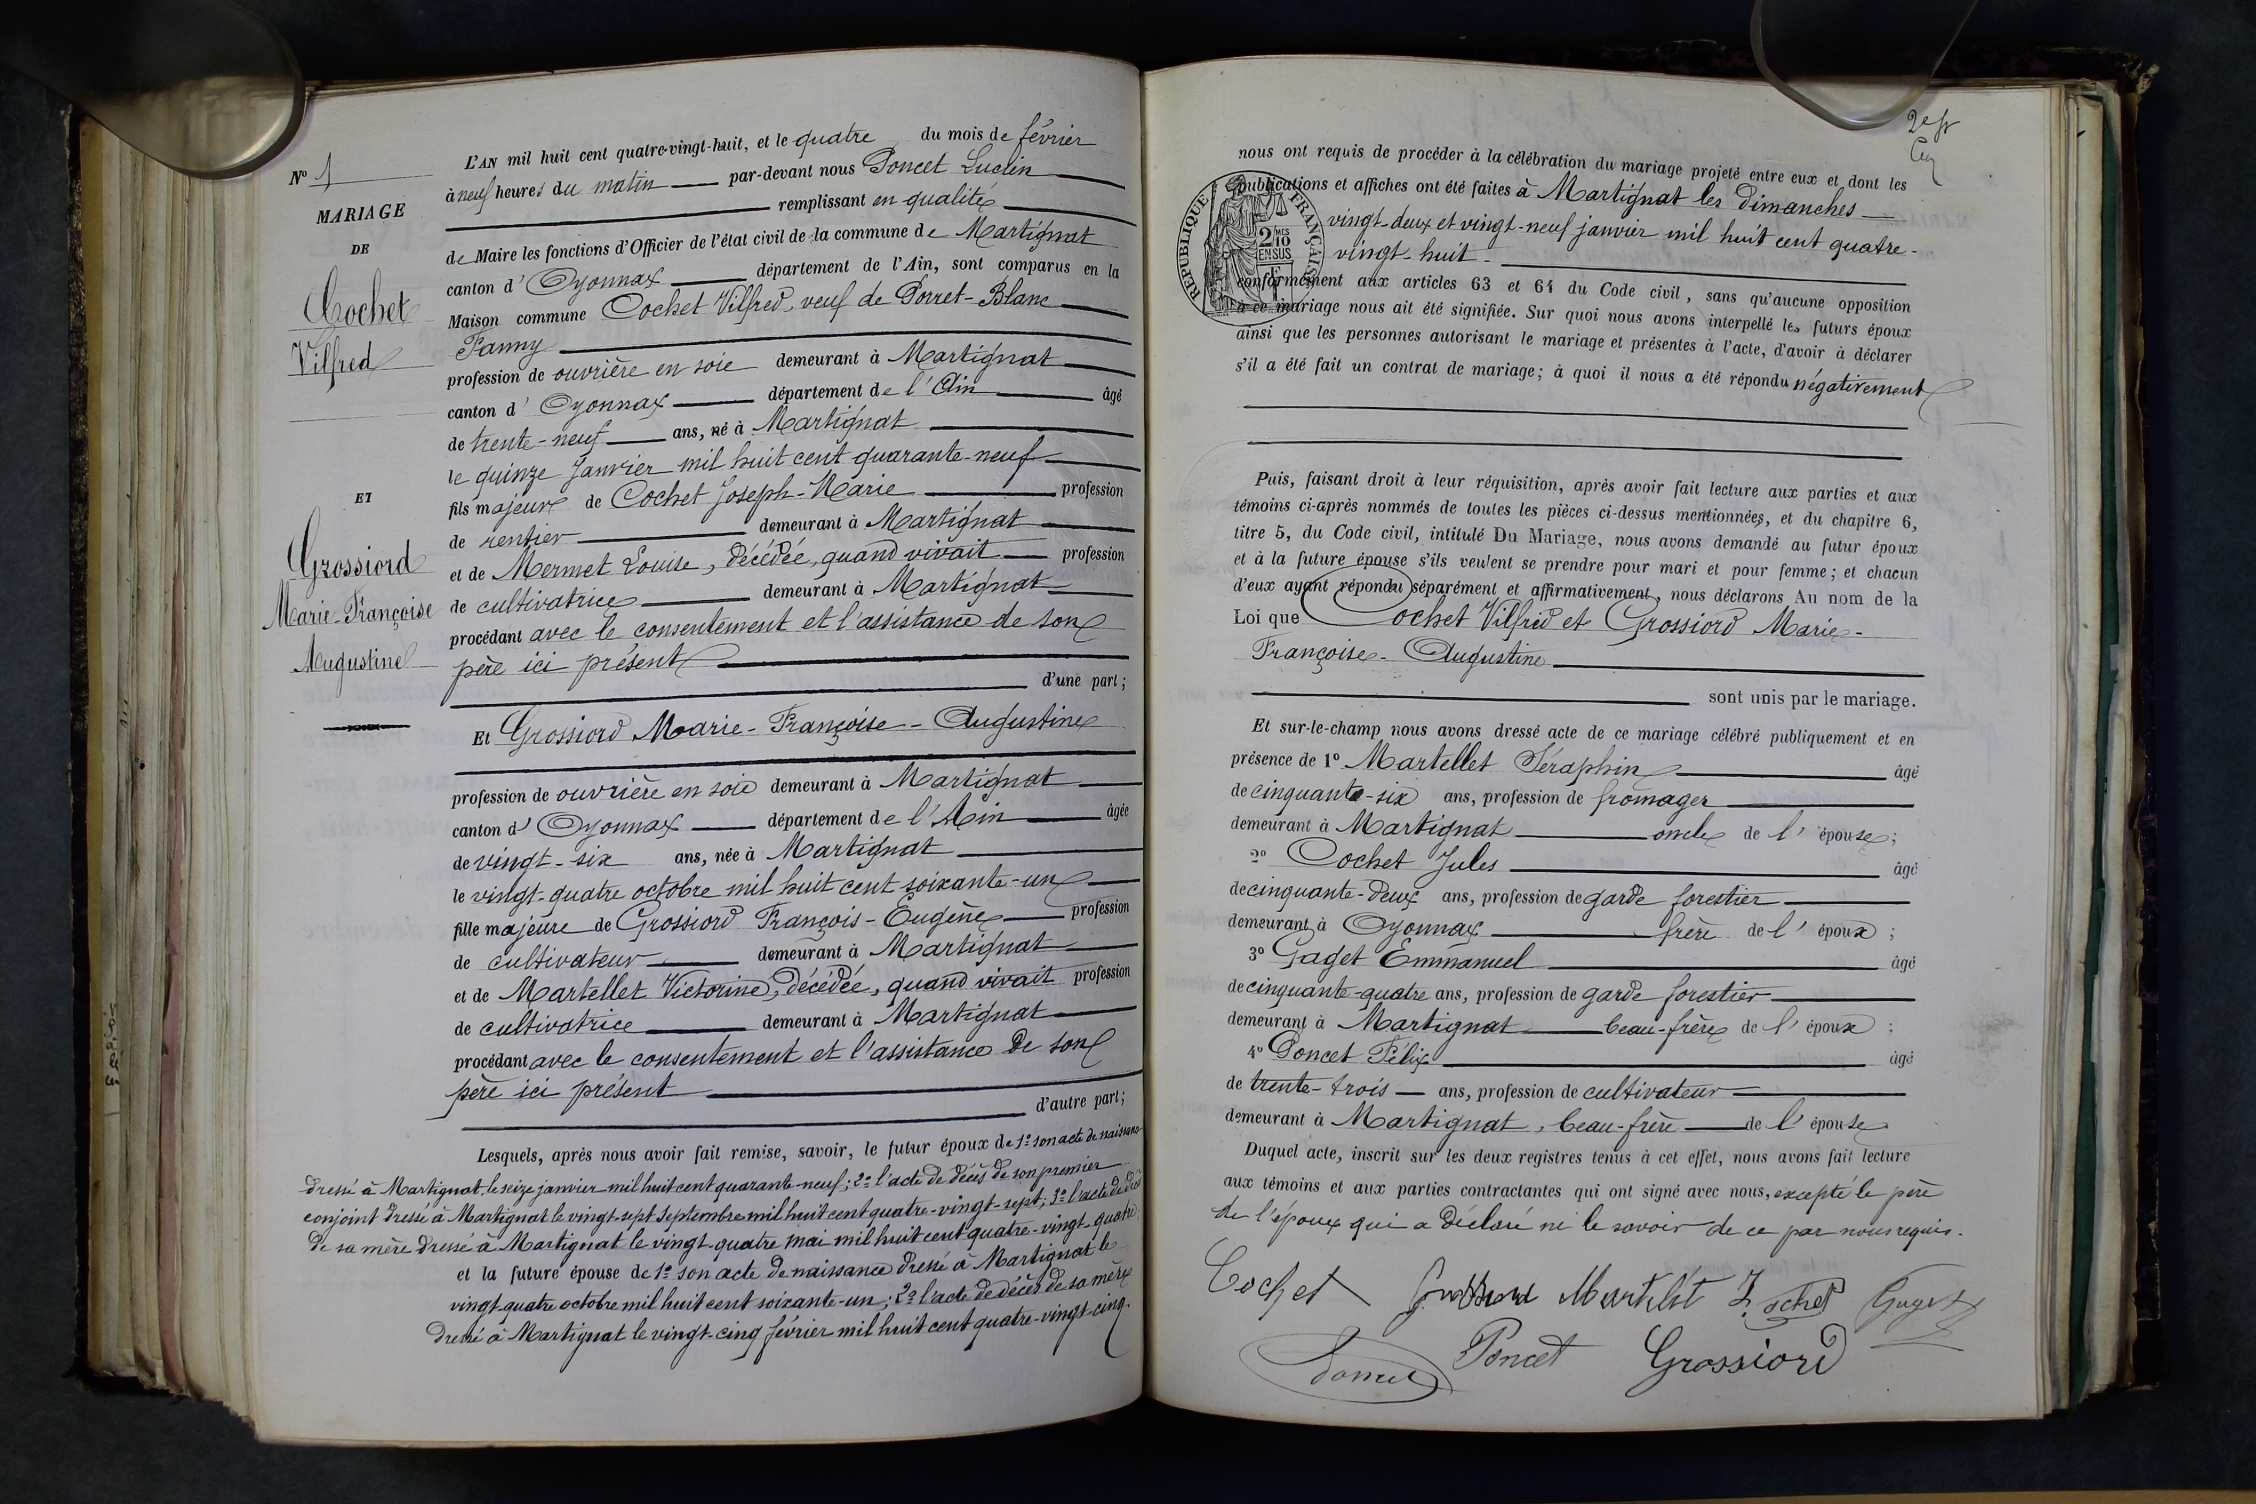 N° 1
MARIAGE
DE
Cochet
Vilfred
ET
Grossiord
Marie-Françoise
Augustine
L'AN mil huit cent quatre-vingt-huit, et le quatre du mois de février
à neuf heures du matin par-devant nous Poncet Luclin
remplissant en qualité
de Maire les fonctions d'Officier de l'état civil de la commune de Martignat
canton d' Oyonnax département de l'Ain, sont comparus en la
Maison commune Cochet Vilfred, veuf de Porret-Blanc
Fanny
profession de ouvrière en soie demeurant à Martignat
canton d' Oyonnax département de l'Ain âgé
de trente-neuf ans, né à Martignat
le quinze janvier mil huit cent quarante-neuf
fils majeur de Cochet Joseph-Marie profession
de rentier demeurant à Martignat
et de Mermet Louise, décédée, quand vivait profession
de cultivatrice demeurant à Martignat
procédant avec le consentement et l'assistance de son
père ici présent
d'une part;
Et Grossiord Marie-Françoise-Augustine
profession de ouvrière en soie demeurant à Martignat
canton d' Oyonnax département de l'Ain âgée
de vingt-six ans, née à Martignat
le vingt-quatre octobre mil huit cent soixante-un
fille majeure de Grossiord François-Eugène profession
de cultivateur demeurant à Martignat
et de Martellet Victorine, décédée, quand vivait profession
de cultivatrice demeurant à Martignat
procédant avec le consentement et l'assistance de son
père ici présent
d'autre part;
Lesquels, après nous avoir fait remise, savoir, le futur époux de 1° son acte de naissance
dressé à Martignat, le seize janvier mil huit cent quarante-neuf; 2° l'acte de décès de son premier
conjoint dressé à Martignat le vingt-sept septembre mil huit cent quatre-vingt-sept; 3° l'acte de décès
de sa mère dressé à Martignat le vingt-quatre mai mil huit cent quatre-vingt-quatre
et la future épouse de 1° son acte de naissance dressé à Martignat le
vingt-quatre octobre mil huit cent soixante-un; 2° l'acte de décès de sa mère
dressé à Martignat le vingt-cinq février mil huit cent quatre-vingt-cinq.
nous ont requis de procéder à la célébration du mariage projeté entre eux et dont les
publications et affiches ont été faites à Martignat les dimanches
vingt-deux et vingt-neuf janvier mil huit cent quatre-
vingt-huit
RÉPUBLIQUE FRANÇAISE
2/10 EN SUS
conformément aux articles 63 et 64 du Code civil, sans qu'aucune opposition
à ce mariage nous ait été signifiée. Sur quoi nous avons interpellé les futurs époux
ainsi que les personnes autorisant le mariage et présentes à l'acte, d'avoir à déclarer
s'il a été fait un contrat de mariage; à quoi il nous a été répondu négativement
Puis, faisant droit à leur réquisition, après avoir fait lecture aux parties et aux
témoins ci-après nommés de toutes les pièces ci-dessus mentionnées, et du chapitre 6,
titre 5, du Code civil, intitulé Du Mariage, nous avons demandé au futur époux
et à la future épouse s'ils veulent se prendre pour mari et pour femme; et chacun
d'eux ayant répondu séparément et affirmativement, nous déclarons Au nom de la
Loi que Cochet Vilfrid et Grossiord Marie-
Françoise-Augustine
sont unis par le mariage.
Et sur-le-champ nous avons dressé acte de ce mariage célébré publiquement et en
présence de 1° Martellet Séraphin âgé
de cinquante-six ans, profession de fromager
demeurant à Martignat oncle de l'épouse;
2° Cochet Jules âgé
de cinquante-deux ans, profession de garde forestier
demeurant à Oyonnax frère de l'époux;
3° Gaget Emmanuel âgé
de cinquante-quatre ans, profession de garde forestier
demeurant à Martignat beau-frère de l'époux;
4° Poncet Félix âgé
de trente-trois ans, profession de cultivateur
demeurant à Martignat, beau-frère de l'épouse
Duquel acte, inscrit sur les deux registres tenus à cet effet, nous avons fait lecture
aux témoins et aux parties contractantes qui ont signé avec nous, excepté le père
de l'époux qui a déclaré ne le savoir de ce par nous requis.
Cochet Martelet J. Cochet
Poncet Grossiord